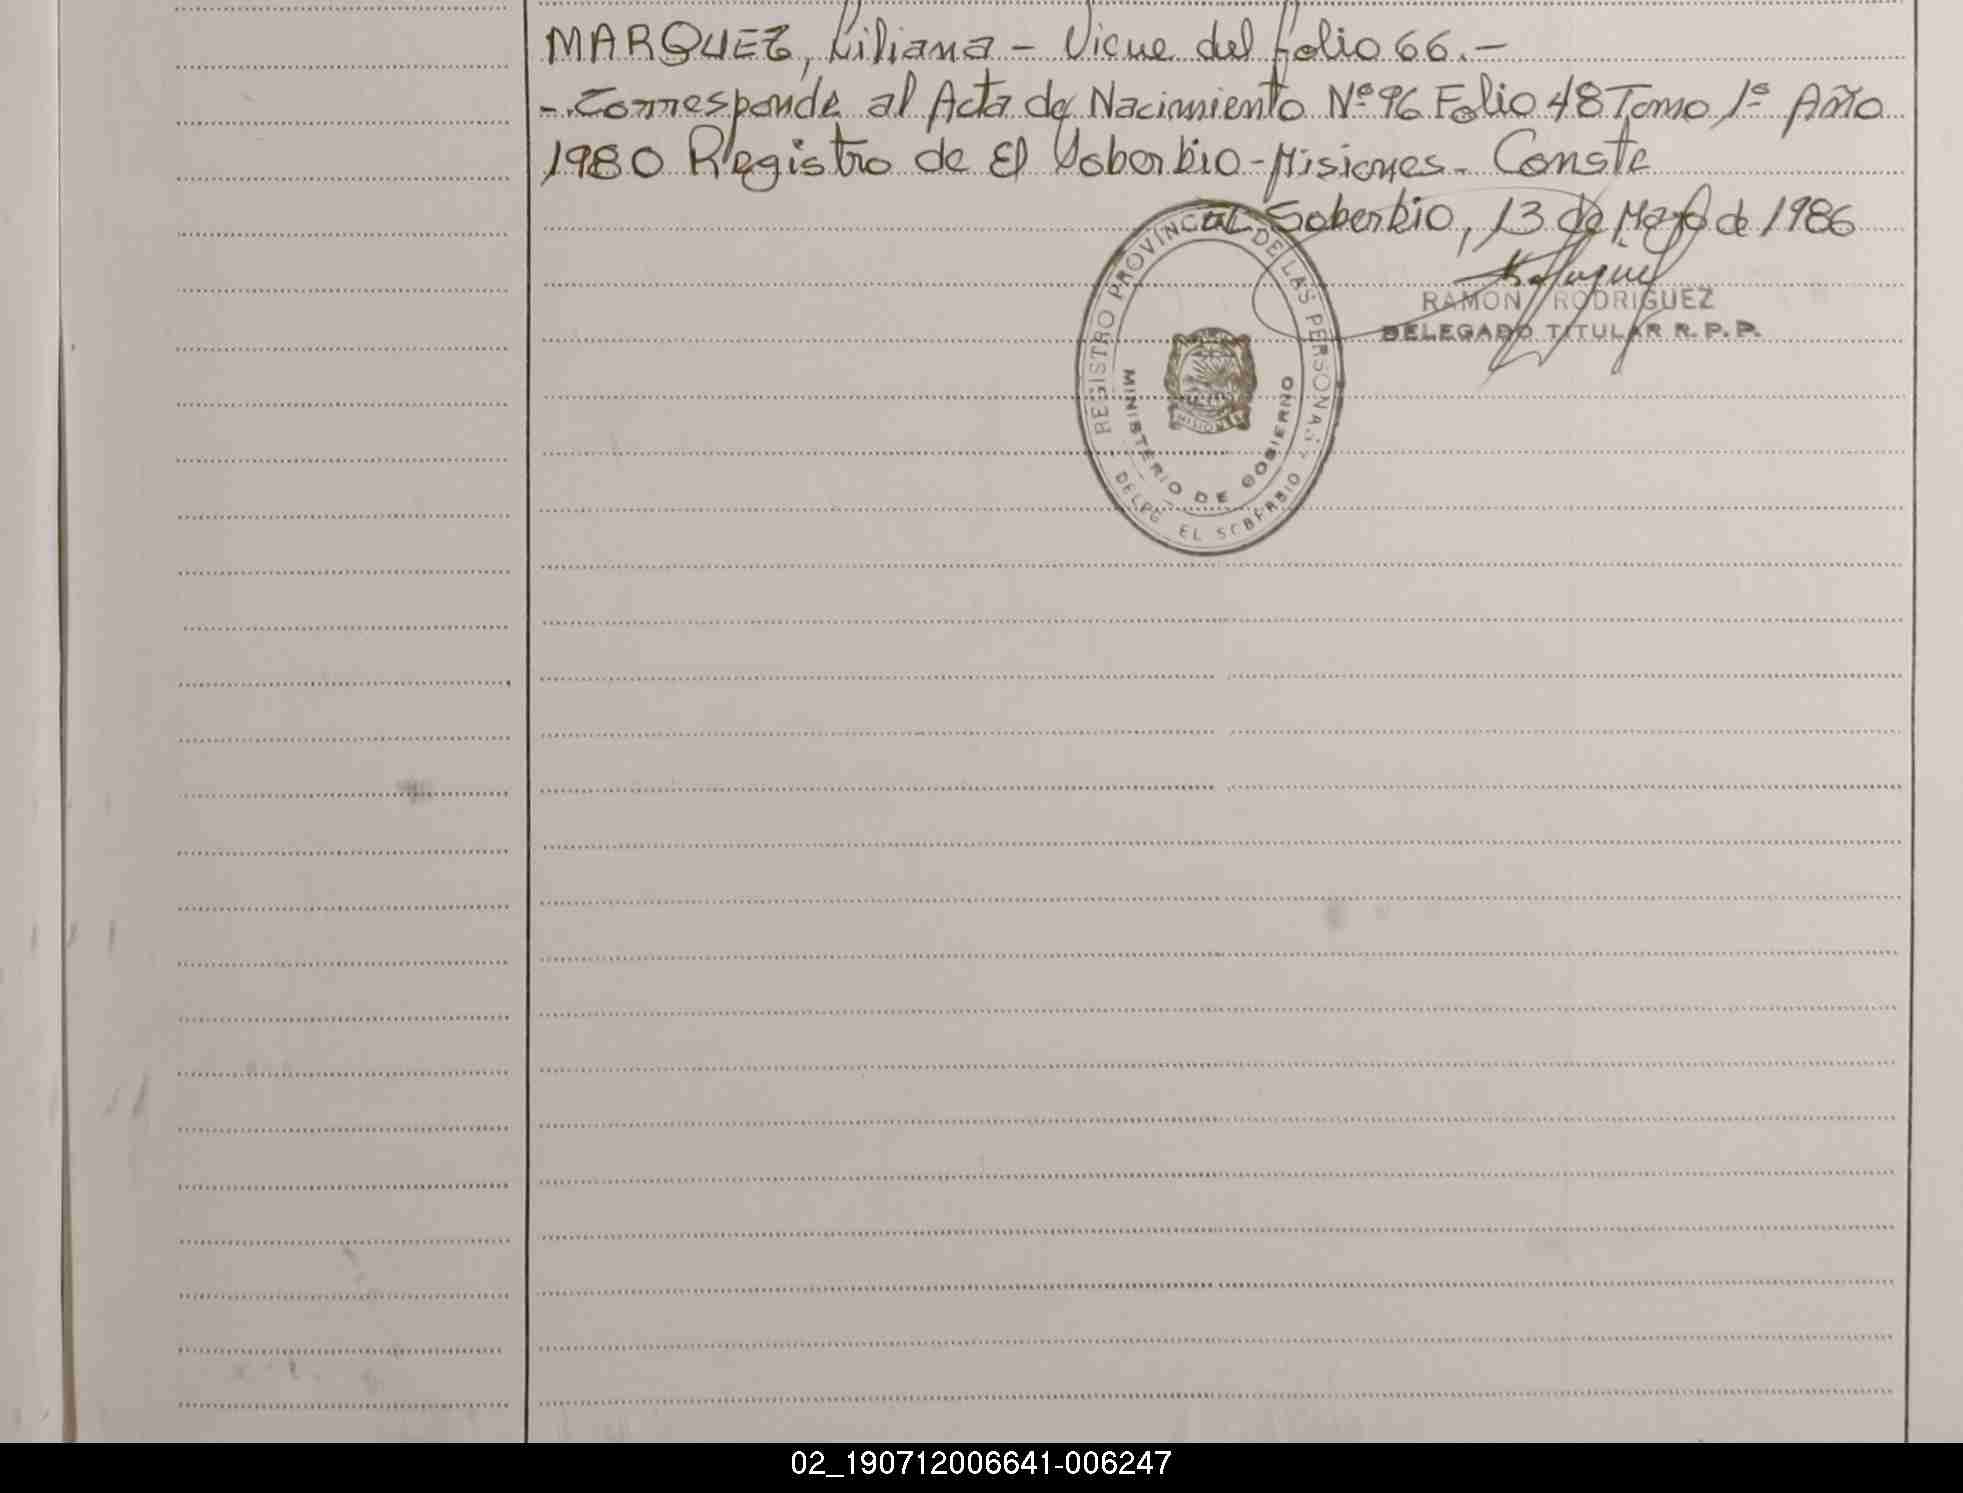 MARQUEZ, Liliana - Viene del folio 66.-
-. Corresponde al Acta de Nacimiento Nº 96 Folio 48 Tomo 1º Año
1980 Registro de El Soberbio - Misiones - Conste
El Soberbio, 13 de Mayo de 1986
RAMON RODRIGUEZ
DELEGADO TITULAR R. P. P.
REGISTRO PROVINCIAL DE LAS PERSONAS
MISIONES
MINISTERIO DE GOBIERNO
DELEG. EL SOBERBIO
02_190712006641-006247